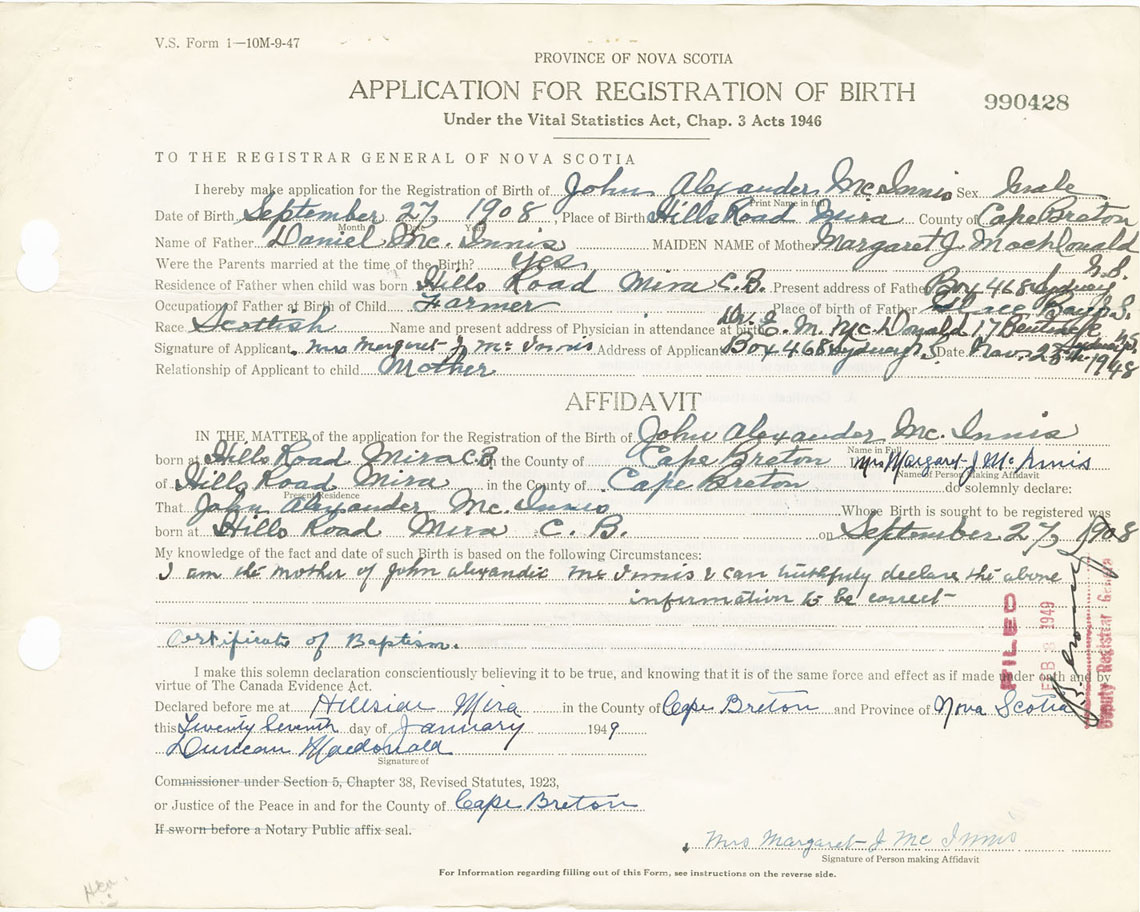 V.S. Form 1—10M-9-47
PROVINCE OF NOVA SCOTIA
APPLICATION FOR REGISTRATION OF BIRTH
990428
Under the Vital Statistics Act, Chap. 3 Acts 1946
TO THE REGISTRAR GENERAL OF NOVA SCOTIA
I hereby make application for the Registration of Birth of John Alexander Mc Innis Sex Male
Print Name in full
Date of Birth September 27, 1908 Place of Birth Hills Road Mira County of Cape Breton
Month Date Year
Name of Father Daniel Mc. Innis MAIDEN NAME of Mother Margaret J MacDonald
Were the Parents married at the time of the Birth? Yes
Residence of Father when child was born Hills Road Mira C.B. Present address of Father Box 468 Sydney N.S.
Occupation of Father at Birth of Child Farmer Place of birth of Father Glace Bay N.S.
Race Scottish Name and present address of Physician in attendance at birth Dr. E. M. McDonald 17 Bentinck Sydney
Signature of Applicant Mrs Margaret J Mc Innis Address of Applicant Box 468 Sydney N.S. Date Nov. 25th 1948
Relationship of Applicant to child Mother
AFFIDAVIT
IN THE MATTER of the application for the Registration of the Birth of John Alexander Mc. Innis
Name in Full
born at Hills Road Mira C.B. in the County of Cape Breton Mrs Margaret J Mc Innis
Name of Person Making Affidavit
of Hills Road Mira in the County of Cape Breton do solemnly declare:
Present Residence
That John Alexander Mc. Innis Whose Birth is sought to be registered was
born at Hills Road Mira C. B. on September 27, 1908
My knowledge of the fact and date of such Birth is based on the following Circumstances:
I am the mother of John Alexander Mc Innis & can truthfuly declare the above
information to be correct
Certificate of Baptism.
I make this solemn declaration conscientiously believing it to be true, and knowing that it is of the same force and effect as if made under oath and by
virtue of The Canada Evidence Act.
Declared before me at Hillside Mira in the County of Cape Breton and Province of Nova Scotia
this Twenty Seventh day of January 1949
Duncan Macdonald
Signature of
Commissioner under Section 5, Chapter 38, Revised Statutes, 1923,
or Justice of the Peace in and for the County of Cape Breton
If sworn before a Notary Public affix seal.
Mrs Margaret J Mc Innis
Signature of Person making Affidavit
For Information regarding filling out of this Form, see instructions on the reverse side.
FILED
FEB 1949
Deputy Registrar General